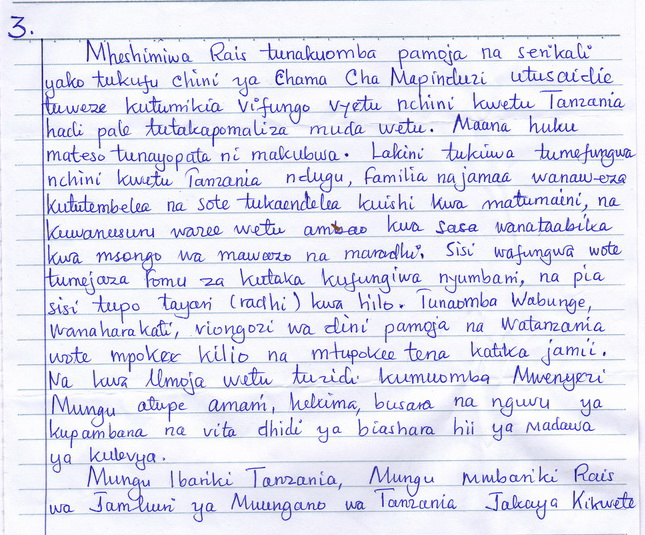 3.
Mheshimiwa Rais tunakuomba pamoja na serikali
yako tukufu chini ya Chama Cha Mapinduzi utusaidie
tuweze kutumikia vifungo vyetu nchini kwetu Tanzania
hadi pale tutakapomaliza muda wetu. Maana huku
mateso tunayopata ni makubwa. Lakini tukiwa tumefungwa
nchini kwetu Tanzania ndugu, familia na jamaa wanaweza
kututembelea na sote tukaendelea kuishi kwa matumaini, na
kuwanusuru wazee wetu ambao kwa sasa wanataabika
kwa msongo wa mawazo na maradhi. Sisi wafungwa wote
tumejaza fomu za kutaka kufungiwa nyumbani, na pia
sisi tupo tayari (radhi) kwa hilo. Tunaomba Wabunge,
wanaharakati, viongozi wa dini pamoja na Watanzania
wote mpokee kilio na mtupokee tena katika jamii.
Na kwa Umoja wetu tuzidi kumuomba Mwenyezi
Mungu atupe amani, hekima, busara na nguvu ya
kupambana na vita dhidi ya biashara hii ya madawa
ya kulevya.
Mungu Ibariki Tanzania, Mungu Mmbariki Rais
wa Jamhuri ya Muungano wa Tanzania Jakaya Kikwete